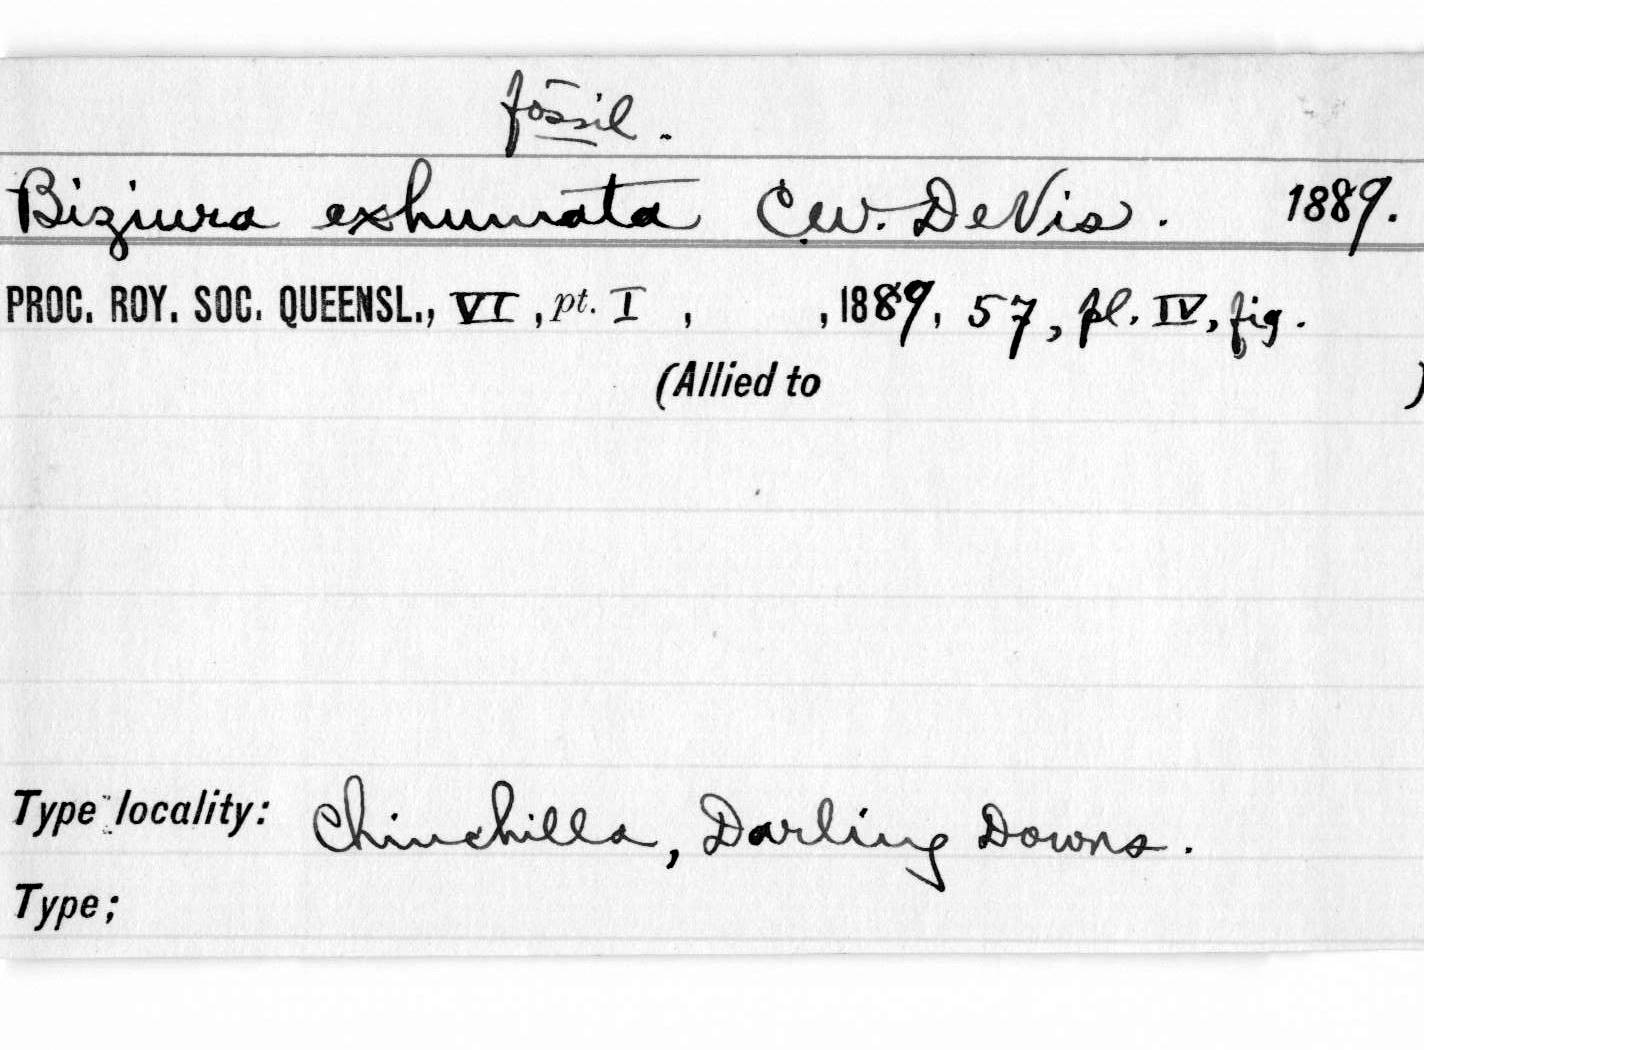 fossil.
Biziura exhumata C.W. De Vis. 1889.
PROC. ROY. SOC. QUEENSL., VI, pt. I , , 1889, 57, pl. IV, fig.
(Allied to )
Type locality: Chinchilla, Darling Downs.
Type;